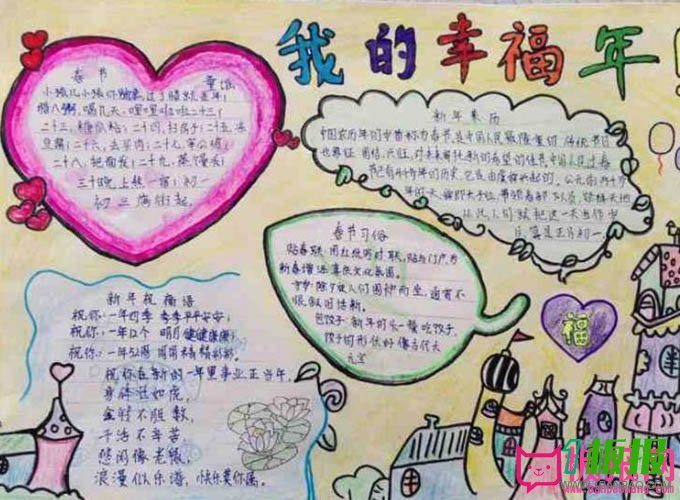 我的幸福年!
春节 童谣
小孩儿小孩你别馋,过了腊就是年;
腊八粥,喝几天,哩哩啦啦二十三;
二十三,糖瓜粘;二十四,扫房子;二十五,冻
豆腐;二十六,去买肉;二十七,宰公鸡;
二十八,把面发;二十九,蒸馒头;
三十晚上熬一宿;初一
初三满街走
新年来历
中国农历年的岁首称为春节,是中国人民最隆重的传统节日
也象征团结、兴旺,对未来寄托新的希望的佳节.中国人民过春
节已有4千多年的历史,它是由虞舜兴起的。公元前两千多
年的一天,舜即天子位,带领着部下人员,祭拜天地
从此,人们就把这一天当作岁
首,算是正月初一.
春节习俗
贴春联:用红纸写对联,贴与门户,为
新春增添喜乐文化氛围。
守岁:除夕夜人们围炉而坐,通宵不
眠,叙旧话新。
包饺子:新年的头一餐吃饺子,
饺子的形状好像古代大
元宝
福
新年祝福语
祝你:一年四季 季季平平安安;
祝你:一年12个月 月月健健康康;
祝你:一年52周 周周精精彩彩.
祝你在新的一年里事业正当午,
身体壮如虎,
金钱不胜数,
干活不辛苦
悠闲像老鼠,
浪漫似乐谱,快乐莫你属。
1板报